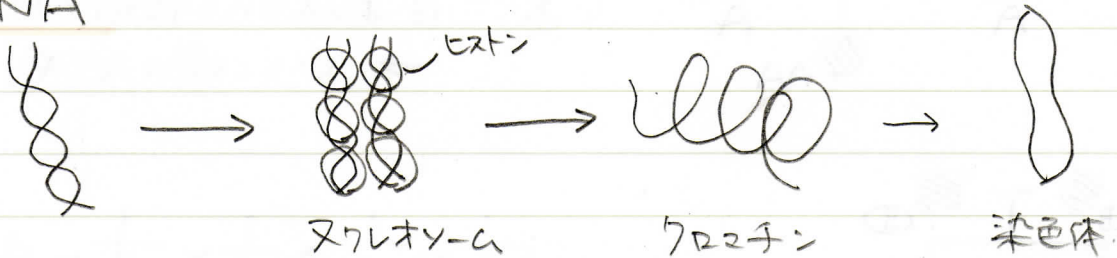 DNA
ヒストン
ヌクレオソーム
クロマチン
染色体